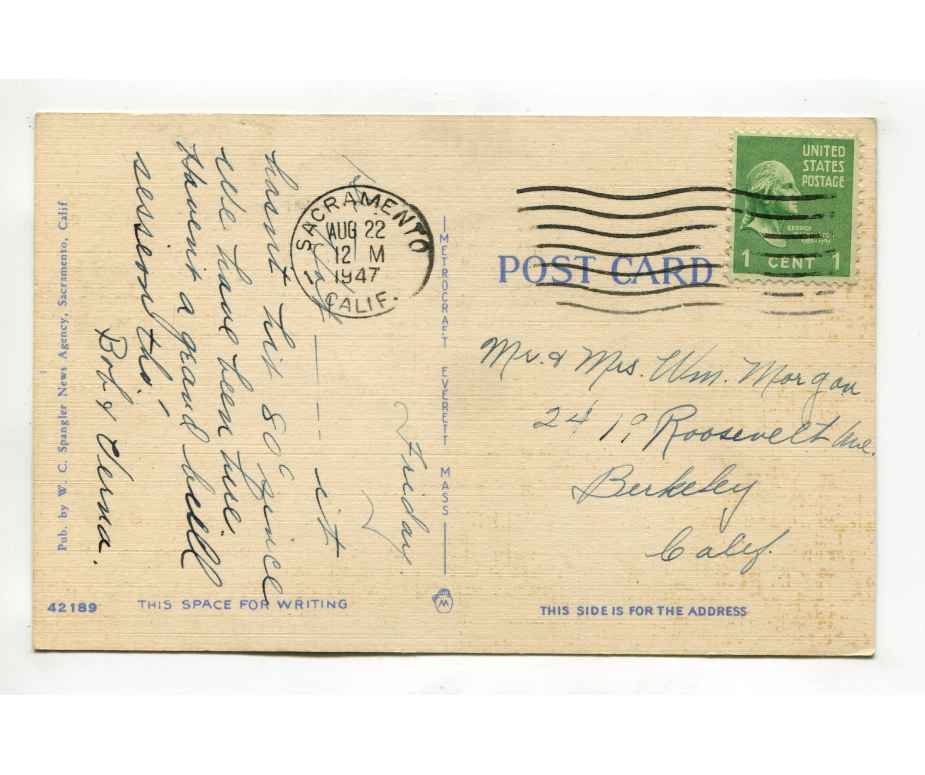 Friday.
it
hasnt hit 80° since
we have been here.
Havent a grand bull
session tho'
Bob & Verna.
SACRAMENTO
AUG 22
12 M
1947
CALIF.
UNITED
STATES
POSTAGE
GEORGE
1 CENT 1
POST CARD
Mr. & Mrs. Wm. Morgan
2419 Roosevelt Ave.
Berkeley
Calif.
Pub. by W. C. Spangler News Agency, Sacramento, Calif
METROCRAFT EVERETT MASS
M
42189
THIS SPACE FOR WRITING
THIS SIDE IS FOR THE ADDRESS